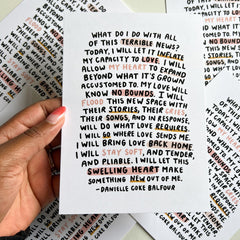 WHAT DO I DO WITH ALL
OF THIS TERRIBLE NEWS?
TODAY, I WILL LET IT INFLATE
MY CAPACITY TO LOVE. I WILL
ALLOW MY HEART TO EXPAND
BEYOND WHAT IT'S GROWN
ACCUSTOMED TO. MY LOVE WILL
KNOW NO BOUNDS. I WILL
FLOOD THIS NEW SPACE WITH
THEIR STORIES, THEIR CRIES,
THEIR SONGS, AND IN RESPONSE
WILL DO WHAT LOVE REQUIRES.
I WILL GO WHERE LOVE SENDS ME.
I WILL BRING LOVE BACK HOME.
I WILL STAY SOFT, AND TENDER,
AND PLIABLE. I WILL LET THIS
SWELLING HEART MAKE
SOMETHING NEW OUT OF ME.
-DANIELLE COKE BALFOUR